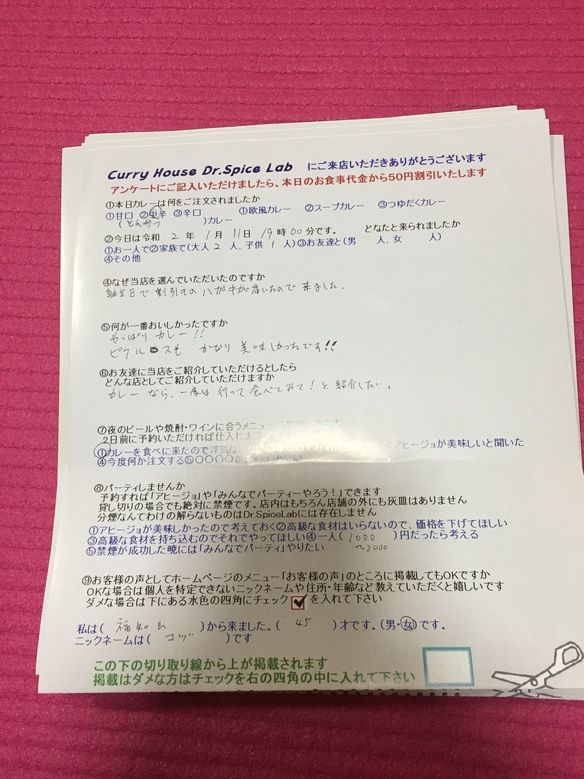 Curry House Dr.Spice Lab にご来店いただきありがとうございます
アンケートにご記入いただけましたら、本日のお食事代金から50円割引いたします
①本日カレーは何をご注文されましたか
①甘口 ②中辛 ③辛口 ①欧風カレー ②スープカレー ③つゆだくカレー
(とんかつ )カレー
②今日は令和 2 年 1 月 11 日 19 時 00 分です。 どなたと来られましたか
①お一人で②家族で(大人 2 人、子供 1 人)③お友達と(男 人、女 人)
④その他
④なぜ当店を選んでいただいたのですか
誕生日で割引きのハガキが届いたので来ました。
⑤何が一番おいしかったですか
やっぱりカレー!!
ピクルスも かなり美味しかったです!!
⑥お友達に当店をご紹介していただけるとしたら
どんな店としてご紹介していただけますか
カレーなら、一度は行って食べてみて!と紹介したい。
⑦夜のビールや焼酎・ワインに合うメニュー
2日前に予約いただければ仕入れ
①カレーを食べに来たので浮気は アヒージョが美味しいと聞いた
④今度何か注文する⑤〇〇〇〇が
⑧パーティしませんか
予約すれば「アヒージョ」や「みんなでパーティーやろう!」できます
貸し切りの場合でも絶対に禁煙です。店内はもちろん店舗の外にも灰皿はありません
分煙なんてわけの解らないものはDr.SpiceLabには存在しません
①アヒージョが美味しかったので考えておく②高級な食材はいらないので、価格を下げてほしい
③高級な食材を持ち込むのでそれでやってほしい④一人( 1000 )円だったら考える
⑤禁煙が成功した暁には「みんなでパーティ」やりたい ~2000
⑨お客様の声としてホームページのメニュー「お客様の声」のところに掲載してもOKですか
OKな場合は個人を特定できないニックネームや住所・年齢など教えていただくと嬉しいです
ダメな場合は下にある水色の四角にチェック を入れて下さい
私は( 福知山 )から来ました。( 45 )才です。(男・女)です。
ニックネームは( コヅ )です
この下の切り取り線から上が掲載されます
掲載はダメな方はチェックを右の四角の中に入れて下さい